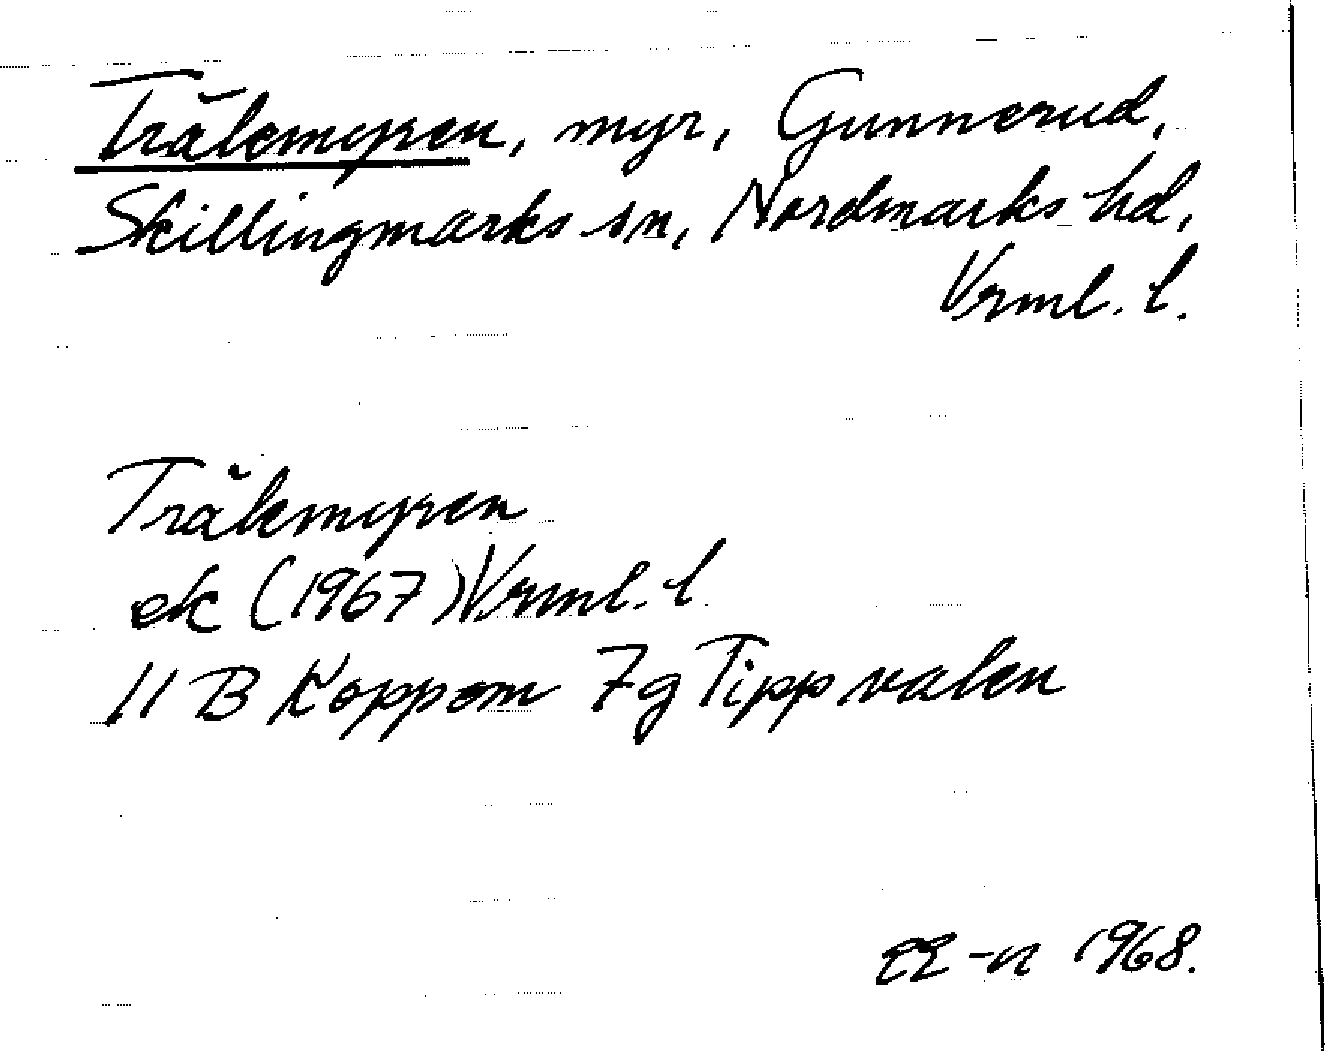 Trålemyren, myr, Gunnerud,
Skillingmarks sn, Nordmarks hd,
Vrml. l.
Trålemyren
ek (1967) Vrml. l.
11 B Koppom 7g Tippvalen
1968.